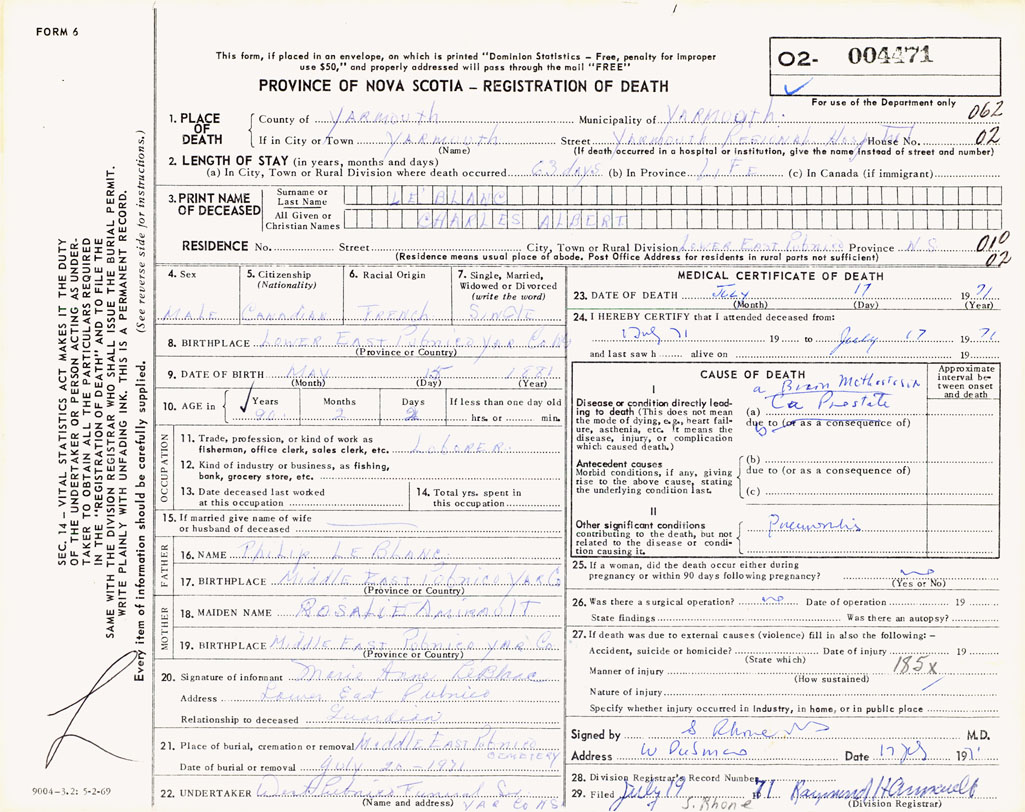 FORM 6
This form, if placed in an envelope, on which is printed "Dominion Statistics – Free, penalty for improper
use $50," and properly addressed will pass through the mail "FREE"
PROVINCE OF NOVA SCOTIA – REGISTRATION OF DEATH
02- 004471
For use of the Department only
1. PLACE OF DEATH
County of YARMOUTH Municipality of YARMOUTH 062
If in City or Town YARMOUTH Street YARMOUTH REGIONAL HOSPITAL House No. 02
(Name) (If death occurred in a hospital or institution, give the name instead of street and number)
2. LENGTH OF STAY (in years, months and days)
(a) In City, Town or Rural Division where death occurred 63 days (b) In Province LIFE (c) In Canada (if immigrant)
3. PRINT NAME OF DECEASED
Surname or Last Name LE'BLANC
All Given or Christian Names CHARLES ALBERT
RESIDENCE No. Street City, Town or Rural Division LOWER EAST PUBNICO Province N.S. 010
(Residence means usual place of abode. Post Office Address for residents in rural parts not sufficient) 02
4. Sex MALE
5. Citizenship (Nationality) CANADIAN
6. Racial Origin FRENCH
7. Single, Married, Widowed or Divorced (write the word) SINGLE
8. BIRTHPLACE LOWER EAST PUBNICO YAR. CO.
(Province or Country)
9. DATE OF BIRTH MAY 15 1881
(Month) (Day) (Year)
10. AGE in Years Months Days If less than one day old
90 2 2 hrs. or min.
OCCUPATION
11. Trade, profession, or kind of work as fisherman, office clerk, sales clerk, etc. LABORER
12. Kind of industry or business, as fishing, bank, grocery store, etc.
13. Date deceased last worked at this occupation
14. Total yrs. spent in this occupation
15. If married give name of wife or husband of deceased
FATHER
16. NAME PHILIP LE BLANC
17. BIRTHPLACE MIDDLE EAST PUBNICO YAR CO
(Province or Country)
MOTHER
18. MAIDEN NAME ROSALIE AMIRAULT
19. BIRTHPLACE MIDDLE EAST PUBNICO YAR CO
(Province or Country)
20. Signature of informant Marie Anne LeBlanc
Address Lower East Pubnico
Relationship to deceased Guardian
21. Place of burial, cremation or removal MIDDLE EAST PUBNICO CEMETERY
Date of burial or removal July 20 - 1971
22. UNDERTAKER West Pubnico Funeral
(Name and address) YAR CO NS
9004-3.2: 5-2-69
MEDICAL CERTIFICATE OF DEATH
23. DATE OF DEATH July 17 1971
(Month) (Day) (Year)
24. I HEREBY CERTIFY that I attended deceased from:
1 July 71 19 to July 17 1971
and last saw h alive on 19
CAUSE OF DEATH
Approximate interval between onset and death
I
a Brain
Disease or condition directly leading to death (This does not mean the mode of dying, e.g., heart failure, asthenia, etc. It means the disease, injury, or complication which caused death.)
(a) Ca Prostate
due to (or as a consequence of)
b
Antecedent causes
Morbid conditions, if any, giving rise to the above cause, stating the underlying condition last.
(b)
due to (or as a consequence of)
(c)
II
Other significant conditions contributing to the death, but not related to the disease or condition causing it.
25. If a woman, did the death occur either during pregnancy or within 90 days following pregnancy? no
(Yes or No)
26. Was there a surgical operation? no Date of operation 19
State findings Was there an autopsy?
27. If death was due to external causes (violence) fill in also the following: –
Accident, suicide or homicide? Date of injury 19
(State which)
Manner of injury 185x
(How sustained)
Nature of injury
Specify whether injury occurred in industry, in home, or in public place
Signed by S Rhone M.D.
Address W Pubnico Date 17 July 1971
28. Division Registrar's Record Number
29. Filed July 19 71
(Division Registrar)
S. Rhone
SEC. 14 – VITAL STATISTICS ACT MAKES IT THE DUTY
OF THE UNDERTAKER OR PERSON ACTING AS UNDER-
TAKER TO OBTAIN ALL THE PARTICULARS REQUIRED
IN THE "REGISTRATION OF DEATH" AND TO FILE THE
SAME WITH THE DIVISION REGISTRAR WHO SHALL ISSUE THE BURIAL PERMIT.
WRITE PLAINLY WITH UNFADING INK. THIS IS A PERMANENT RECORD.
Every item of information should be carefully supplied. (See reverse side for instructions.)